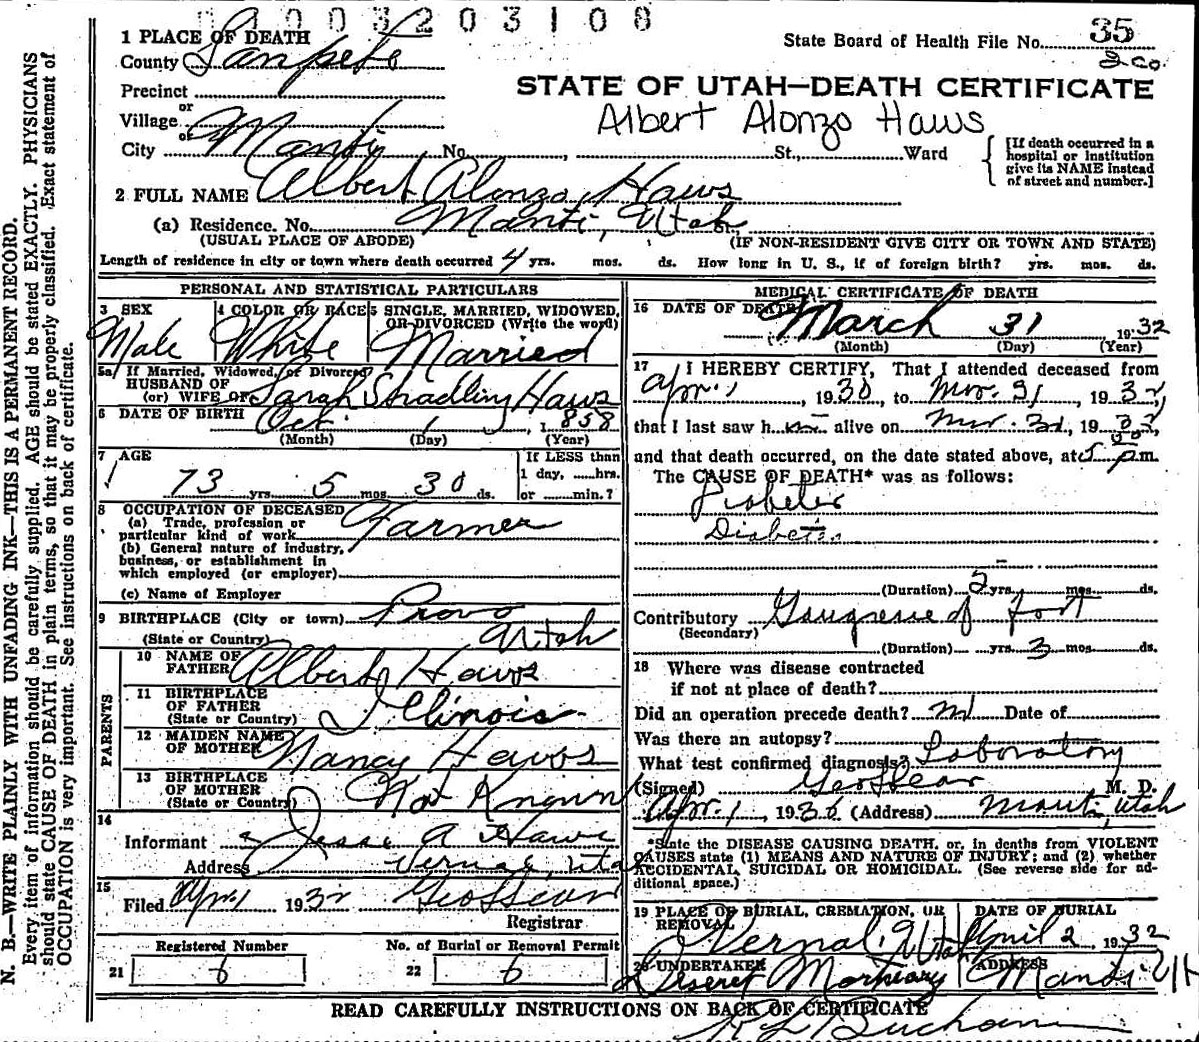 0003203108
1 PLACE OF DEATH
State Board of Health File No. 35
County Sanpete
2 co.
STATE OF UTAH—DEATH CERTIFICATE
Precinct
or
Village
Albert Alonzo Haws
or
City Manti No. , St., Ward
[If death occurred in a
hospital or institution
give its NAME instead
of street and number.]
2 FULL NAME Albert Alonzo Haws
(a) Residence. No. Manti, Utah
(USUAL PLACE OF ABODE) (IF NON-RESIDENT GIVE CITY OR TOWN AND STATE)
Length of residence in city or town where death occurred 4 yrs. mos. ds. How long in U. S., if of foreign birth? yrs. mos. ds.
PERSONAL AND STATISTICAL PARTICULARS
3 SEX
Male
4 COLOR OR RACE
White
5 SINGLE, MARRIED, WIDOWED,
OR DIVORCED (Write the word)
Married
5a If Married, Widowed, or Divorced
HUSBAND OF
(or) WIFE OF Sarah Stradling Haws
6 DATE OF BIRTH Oct. 1, 1858
(Month) (Day) (Year)
7 AGE
73 yrs. 5 mos. 30 ds.
If LESS than
1 day, hrs.
or min.?
8 OCCUPATION OF DECEASED
(a) Trade, profession or
particular kind of work Farmer
(b) General nature of industry,
business, or establishment in
which employed (or employer)
(c) Name of Employer
9 BIRTHPLACE (City or town) Provo
(State or Country) Utah
PARENTS
10 NAME OF
FATHER Albert Haws
11 BIRTHPLACE
OF FATHER
(State or Country) Illinois
12 MAIDEN NAME
OF MOTHER Nancy Haws
13 BIRTHPLACE
OF MOTHER
(State or Country) Not Known
14
Informant Jesse A Haws
Address Vernal, Utah
15
Filed Apr. 1 1932
Registrar
Registered Number
21 6
No. of Burial or Removal Permit
22 6
MEDICAL CERTIFICATE OF DEATH
16 DATE OF DEATH
March 31 1932
(Month) (Day) (Year)
17 I HEREBY CERTIFY, That I attended deceased from
Apr. 1, 1930, to Mar. 31, 1932,
that I last saw h alive on Mar. 31, 1932,
and that death occurred, on the date stated above, at 5 p.m.
The CAUSE OF DEATH* was as follows:
Diabetes
Diabetis
(Duration) 2 yrs. mos. ds.
Contributory Gangrene of foot
(Secondary)
(Duration) yrs. 3 mos. ds.
18 Where was disease contracted
if not at place of death?
Did an operation precede death? Date of
Was there an autopsy?
What test confirmed diagnosis? Laboratory
(Signed) M. D.
Apr. 1, 1932 (Address) Manti, Utah
*State the DISEASE CAUSING DEATH, or, in deaths from VIOLENT
CAUSES state (1) MEANS AND NATURE OF INJURY; and (2) whether
ACCIDENTAL, SUICIDAL OR HOMICIDAL. (See reverse side for ad-
ditional space.)
19 PLACE OF BURIAL, CREMATION, OR
REMOVAL
Vernal, Utah
DATE OF BURIAL
April 2 1932
20 UNDERTAKER
Deseret Mortuary
ADDRESS
Manti Ut
READ CAREFULLY INSTRUCTIONS ON BACK OF CERTIFICATE
N. B.—WRITE PLAINLY WITH UNFADING INK—THIS IS A PERMANENT RECORD.
Every item of information should be carefully supplied. AGE should be stated EXACTLY. PHYSICIANS
should state CAUSE OF DEATH in plain terms, so that it may be properly classified. Exact statement of
OCCUPATION is very important. See instructions on back of certificate.